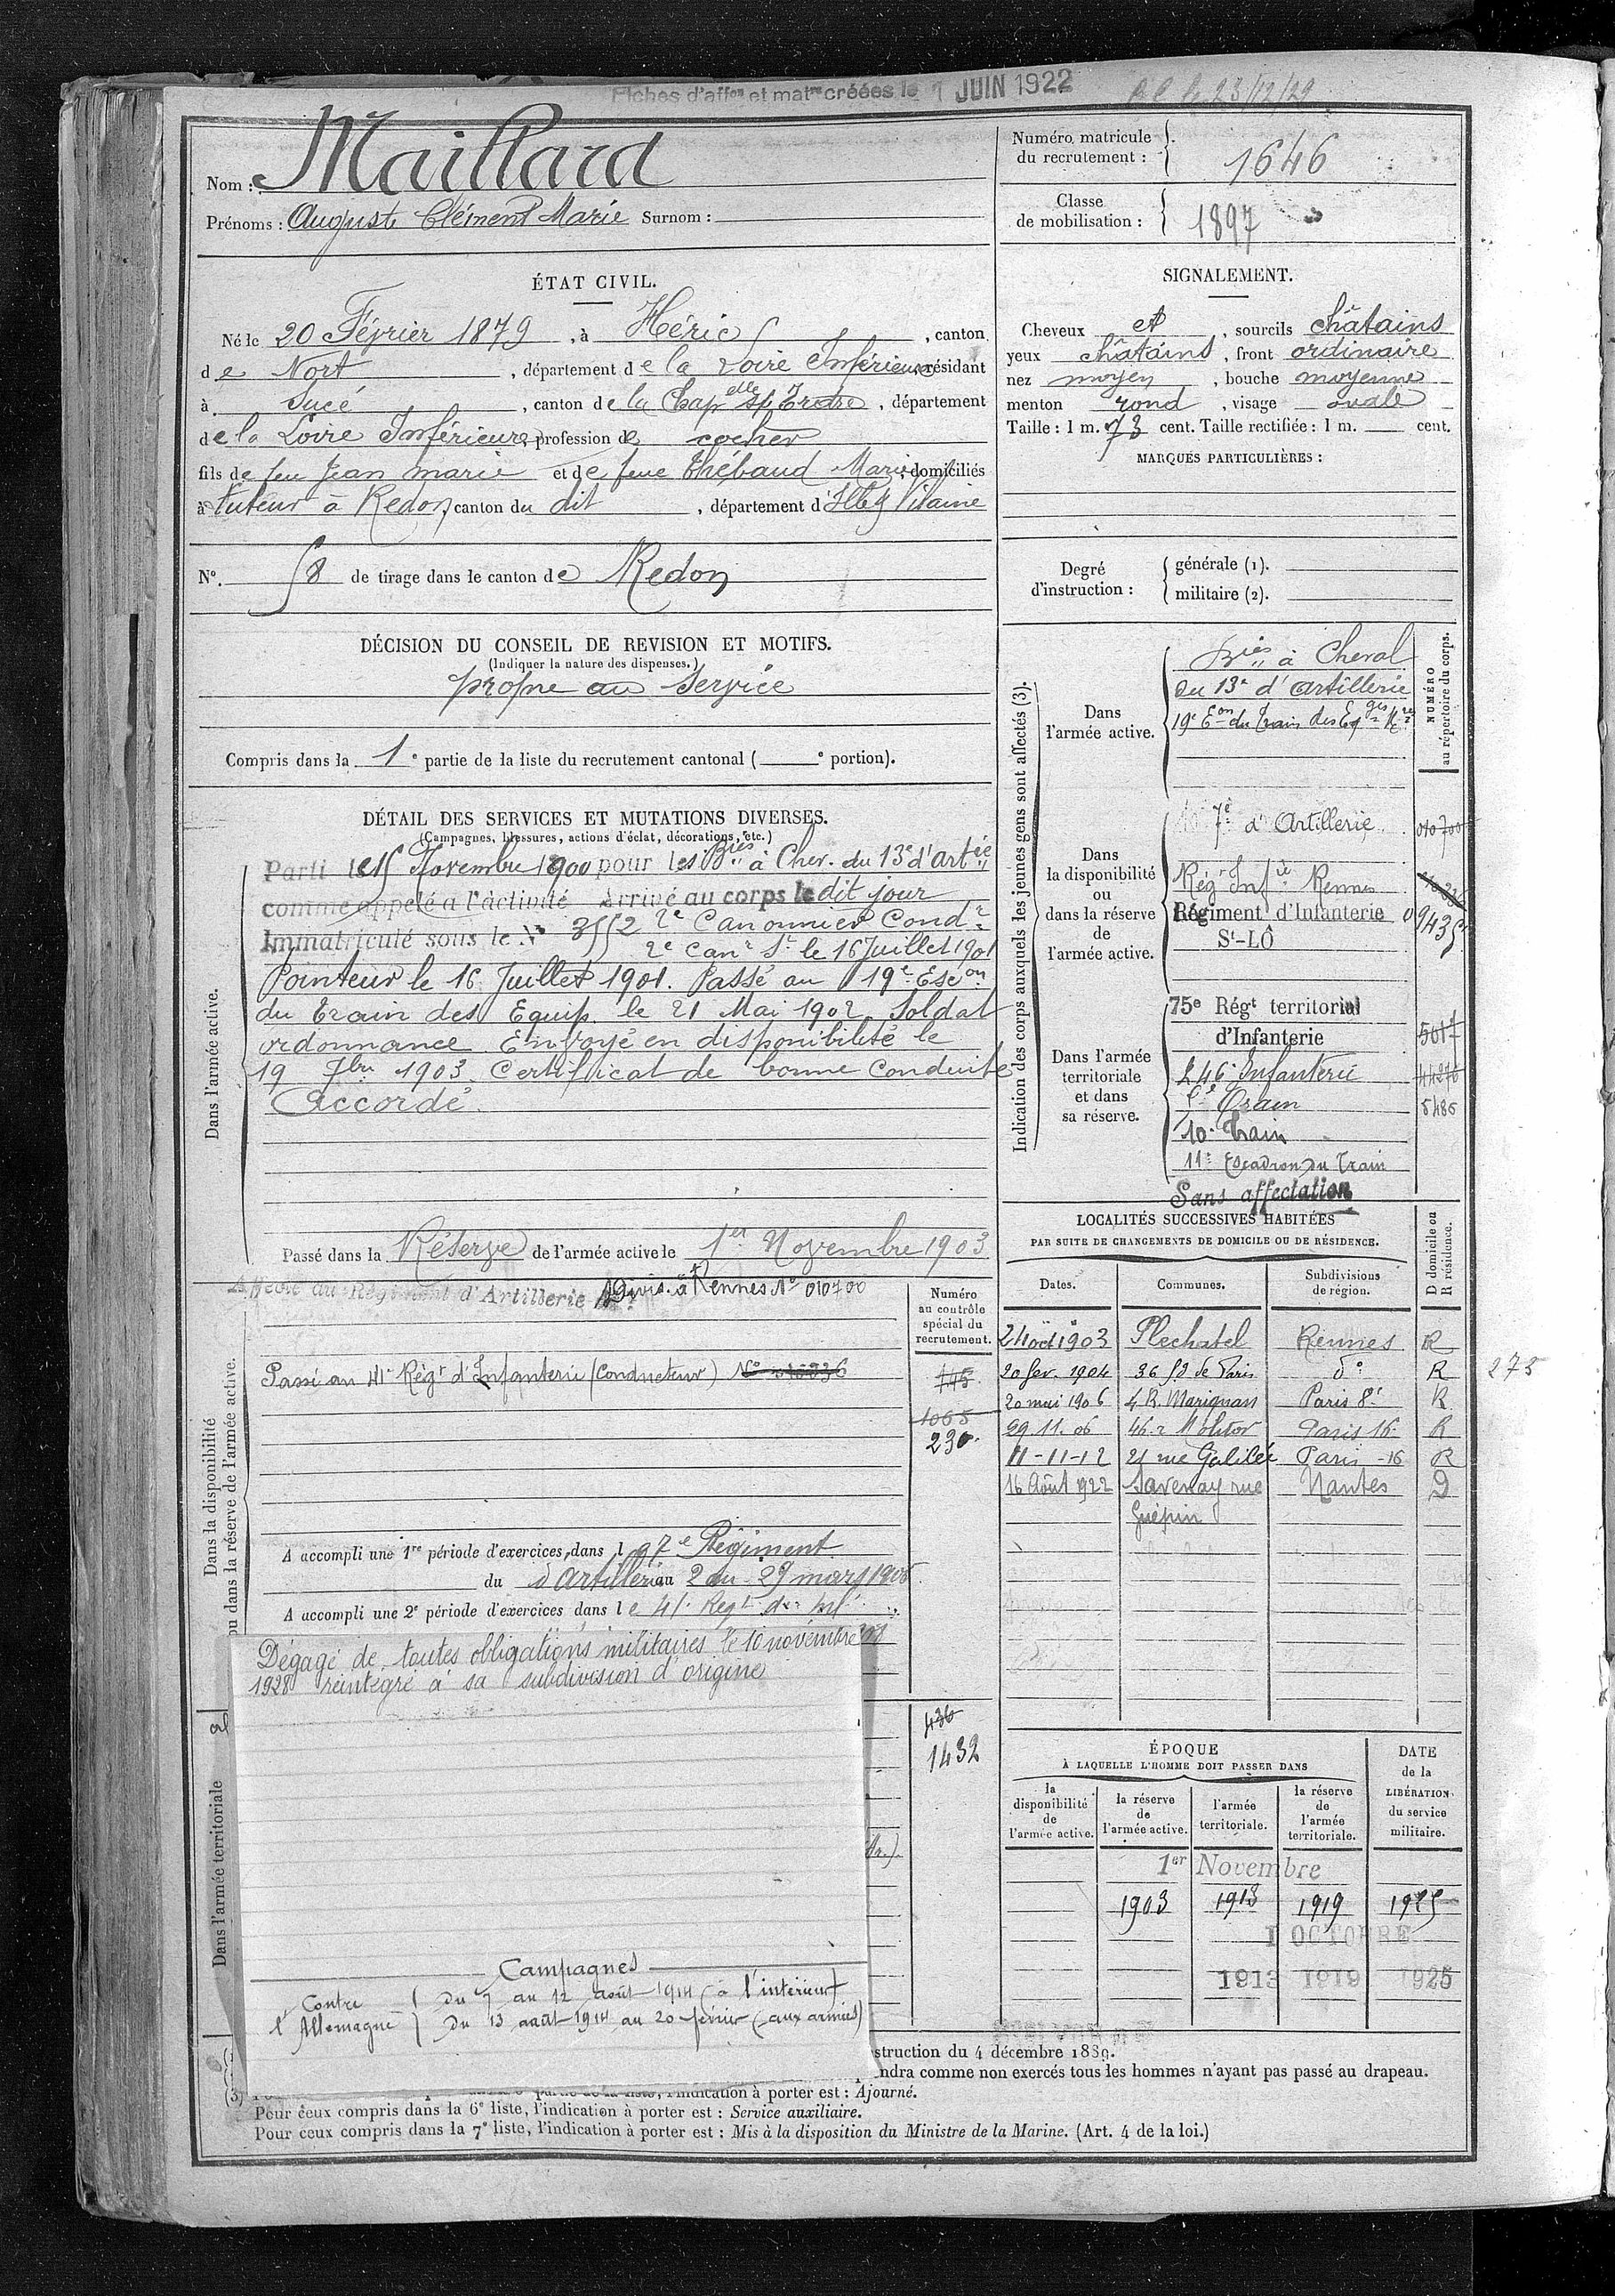 Fiches d'affon et matre créées le 1 JUIN 1922
Nom : Maillard
Prénoms : Auguste Clément Marie Surnom :
Numéro matricule du recrutement : 1646
Classe de mobilisation : 1897
ÉTAT CIVIL.
Né le 20 Février 1879, à Héric, canton
de Nort, département de la Loire Inférieure résidant
à Sucé, canton de la Chapelle s/ Erdre, département
de la Loire Inférieure, profession de cocher
fils de feu Jean Marie et de feue Thébaud Marie, domiciliés
à tuteur à Redon, canton du dit, département d'Ille & Vilaine
No. 58 de tirage dans le canton de Redon
SIGNALEMENT.
Cheveux et, sourcils châtains
yeux châtains, front ordinaire
nez moyen, bouche moyenne
menton rond, visage ovale
Taille : 1 m. 73 cent. Taille rectifiée : 1 m. cent.
MARQUES PARTICULIÈRES :
Degré d'instruction :
générale (1).
militaire (2).
DÉCISION DU CONSEIL DE REVISION ET MOTIFS.
(Indiquer la nature des dispenses.)
propre au service
Compris dans la 1e partie de la liste du recrutement cantonal ( e portion).
DÉTAIL DES SERVICES ET MUTATIONS DIVERSES.
(Campagnes, blessures, actions d'éclat, décorations, etc.)
Dans l'armée active.
Parti le 15 Novembre 1900 pour les Bies à Chev. du 13e d'Artie
comme appelé à l'activité Arrivé au corps le dit jour
Immatriculé sous le No 3552 2e Canonnier Condr
2e Canr St le 16 Juillet 1901
Pointeur le 16 Juillet 1901. Passé au 19e Escon
du Train des Equip. le 21 Mai 1902. Soldat
ordonnance. Envoyé en disponibilité le
19 7bre 1903. Certificat de bonne conduite
Accordé.
Passé dans la Réserve de l'armée active le 1er Novembre 1903
Affecté au Régiment d'Artillerie Divis. à Rennes No 010700
Passé au 41e Régt d'Infanterie (Conducteur) No
Dans la disponibilité ou dans la réserve de l'armée active.
Numéro au contrôle spécial du recrutement.
145
1065
230.
A accompli une 1re période d'exercices, dans le 7e Régiment
d'Artillerie du 2 au 29 mars 1906
A accompli une 2e période d'exercices dans le 41e Regt d'Inf
Dégagé de toutes obligations militaires le 10 novembre
1928 réintégré à sa subdivision d'origine
Dans l'armée territoriale
436
1432
Campagnes
Contre l'Allemagne
Du 7 au 12 août 1914 (à l'intérieur)
Du 13 août 1914 au 20 février (aux armées)
Indication des corps auxquels les jeunes gens sont affectés (3).
NUMÉRO au répertoire du corps.
Dans l'armée active.
Bies à Cheval
du 13e d'Artillerie
19e Eon du Train des Eqges Mres
Dans la disponibilité ou dans la réserve de l'armée active.
7e d'Artillerie 010700
Régt Infie Rennes
Régiment d'Infanterie 09435
St-LÔ
Dans l'armée territoriale et dans sa réserve.
75e Régt territorial
d'Infanterie 5017
246e Infanterie 44270
Train 5486
10e Train
11e Escadron du Train
Sans affectation
LOCALITÉS SUCCESSIVES HABITÉES
PAR SUITE DE CHANGEMENTS DE DOMICILE OU DE RÉSIDENCE.
Dates. Communes. Subdivisions de région. D domicile ou R résidence.
24 oct 1903 Plechatel Rennes R
20 fev. 1904 36 fg de Paris do R 275
20 mai 1906 4 R. Marignan Paris 8e R
29 11. 06 46 r Molitor Paris 16e R
11-11-12 21 rue Galilée Paris -16 R
16 Août 1922 Savenay rue Guépin Nantes D
ÉPOQUE
À LAQUELLE L'HOMME DOIT PASSER DANS
la disponibilité de l'armée active.
la réserve de l'armée active.
l'armée territoriale.
la réserve de l'armée territoriale.
DATE de la LIBÉRATION du service militaire.
1er Novembre
1903 1913 1919 1925
1 OCTOBRE
1913 1919 1925
struction du 4 décembre 1889.
ndra comme non exercés tous les hommes n'ayant pas passé au drapeau.
l'indication à porter est : Ajourné.
Pour ceux compris dans la 6e liste, l'indication à porter est : Service auxiliaire.
Pour ceux compris dans la 7e liste, l'indication à porter est : Mis à la disposition du Ministre de la Marine. (Art. 4 de la loi.)